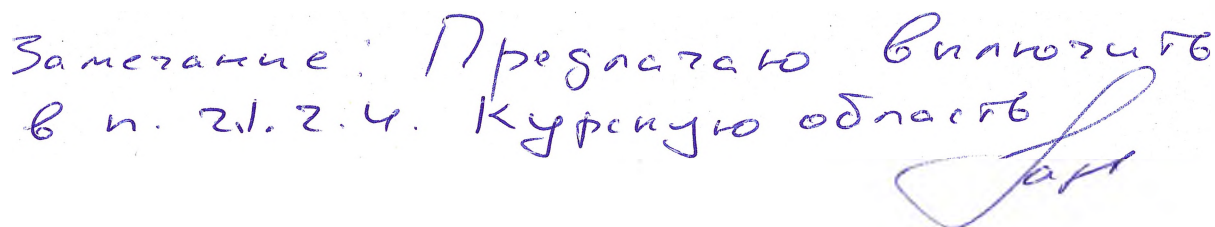 Замечание: Предлагаю включить
в п. 2.1.2.4. Курскую область